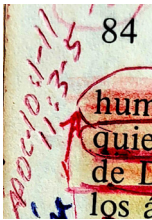 84
APOC-10:1-11
11:3-5
hum
quie
de L
los á